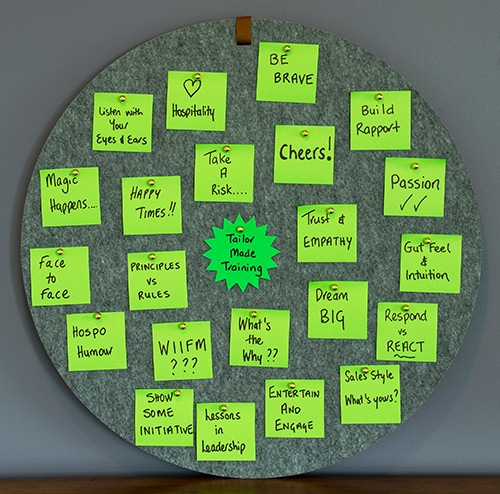 BE
BRAVE
♡
Hospitality
Listen with
Your
Eyes & Ears
Build
Rapport
Cheers!
Take
A
Risk....
Magic
Happens....
HAPPY
TIMES!!
Passion
✓✓
Trust &
EMPATHY
Tailor
Made
Training
Gut Feel
&
Intuition
Face
to
Face
PRINCIPLES
VS
RULES
Dream
BIG
Hospo
Humour
WIIFM
???
What's
the
Why??
Respond
vs
REACT
Sales Style
What's yours?
SHOW
SOME
INITIATIVE
Lessons
in
Leadership
ENTERTAIN
AND
ENGAGE